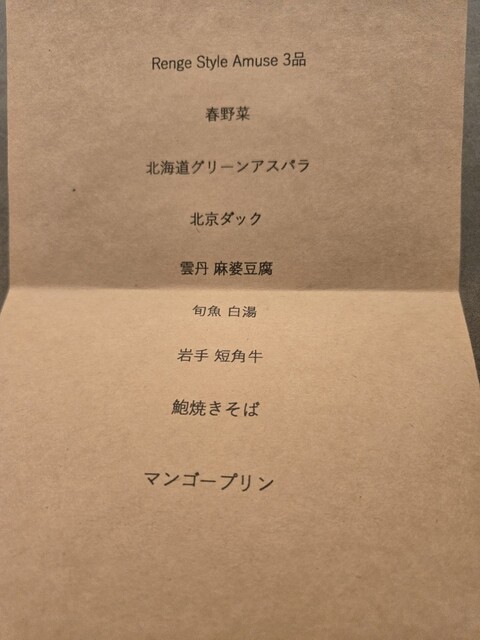 Renge Style Amuse 3品
春野菜
北海道グリーンアスパラ
北京ダック
雲丹 麻婆豆腐
旬魚 白湯
岩手 短角牛
鮑焼きそば
マンゴープリン